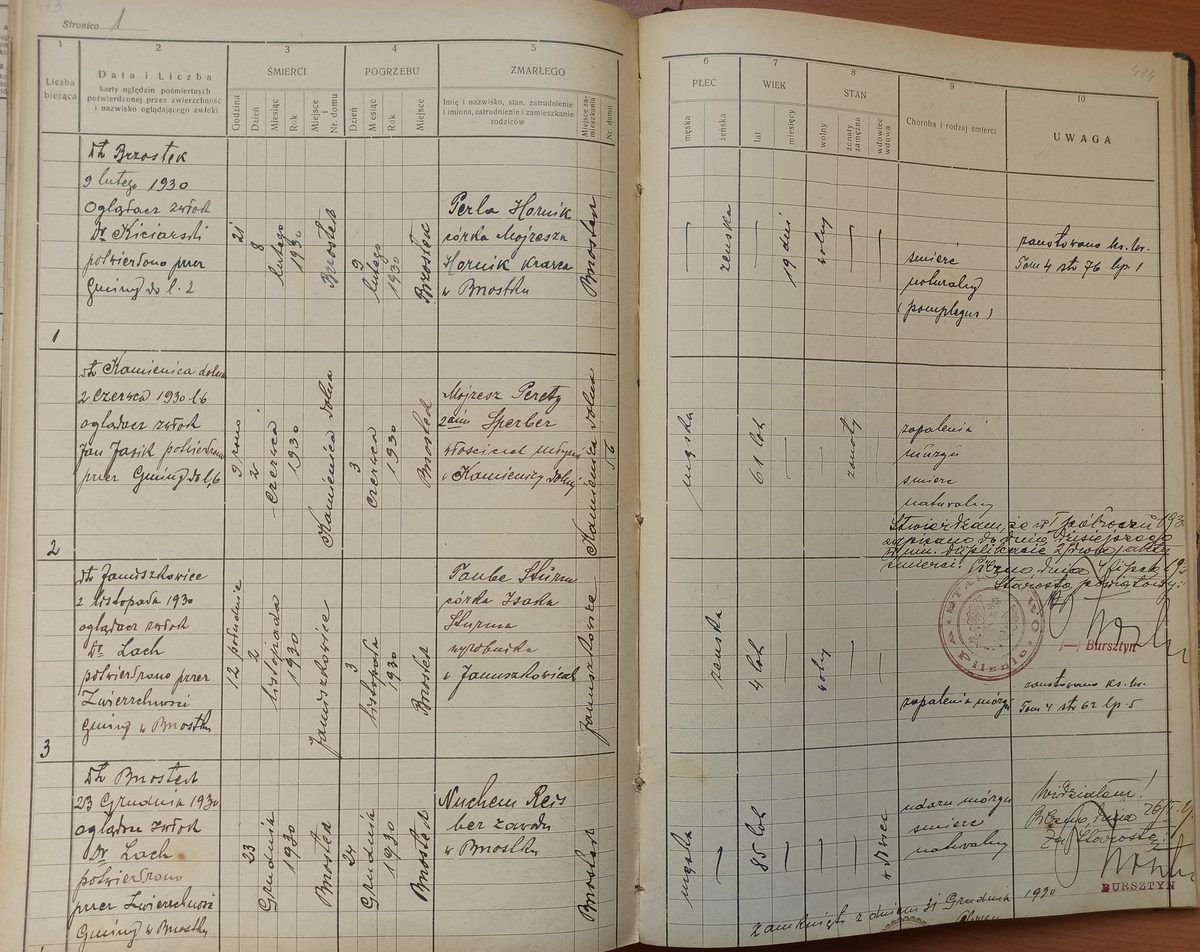 Stronica 1
1
2
3
4
5
Liczba bieżąca
Data i Liczba
karty oględzin pośmiertnych
potwierdzonej przez zwierzchność
i nazwisko oglądającego zwłoki
ŚMIERCI
Godzina
Dzień
Miesiąc
Rok
Miejsce
Nr. domu
POGRZEBU
Dzień
Miesiąc
Rok
Miejsce
ZMARŁEGO
Imię i nazwisko, stan, zatrudnienie
i imiona, zatrudnienie i zamieszkanie
rodziców
Miejsce zamieszkania
Nr. domu
6
7
8
9
10
484
PŁEĆ
męska
żeńska
WIEK
lat
miesięcy
STAN
wolny
żonaty
zamężna
wdowiec
wdowa
Choroba i rodzaj śmierci
UWAGA
1
dt Brzostek
9 lutego 1930
oglądacz zwłok
Dr Kiciarski
potwierdzono przez
Gminę do l. 2
21
8
lutego
1930
Brzostek
9
lutego
1930
Brzostek
Perla Hornik
córka Mojżesza
Hornik krawca
w Brzostku
Brzostek
żeńska
19 dni
wolny
śmierć
naturalny
(pomplegus)
zanotowano ks. ur.
Tom 4 str 76 lp. 1
2
dt Kamienica dolna
2 Czerwca 1930 l.6
oglądacz zwłok
Jan Jasik potwierdzono
przez Gminę do l.6
9 rano
2
Czerwca
1930
Kamienica dolna
3
Czerwca
1930
Brzostek
Mojżesz Peretz
2 aim Sperber
właściciel młyna
w Kamienicy dolnej
Kamienica dolna
56
męska
61 lat
żonaty
zapalenia
mózgu
śmierć
naturalny
Stwierdzam, że w I półroczu 1930
zapisano do dnia dzisiejszego
w nin. duplikacie 2 (dwa) akty
śmierci. Pilzno, dnia 4 lipca 19
Starosta powiatowy:
(—) Bursztyn
3
dt Januszkowice
2 listopada 1930
oglądacz zwłok
Dr Lach
potwierdzono przez
Zwierzchność
Gminy w Brzostku
12 południe
2
listopada
1930
Januszkowice
3
listopada
1930
Brzostek
Taube Sturm
córka Izaka
Sturma
wyrobnika
w Januszkowicach
Januszkowice
żeńska
4 lat
wolny
zapalenia mózgu
zanotowano ks. ur.
Tom 4 str 62 lp. 5
dt Brzostek
23 Grudnia 1930
oglądacz zwłok
Dr Lach
potwierdzono
przez Zwierzchność
Gminy w Brzostku
23
Grudnia
1930
Brzostek
24
Grudnia
1930
Brzostek
Nuchem Reis
bez zawodu
w Brzostku
Brzostek
męska
85 lat
wdowiec
udaru mózgu
śmierć
naturalny
Widziałem!
Pilzno, dnia 26/I
Za Starostę:
BURSZTYN
Zamknięto z dniem 31 Grudnia 1930